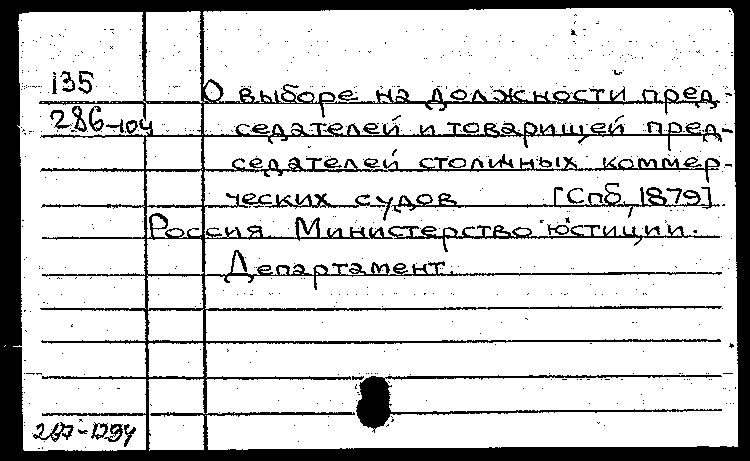 135
О выборе на должности пред-
286-104
седателей и товарищей пред-
седателей столичных коммер-
ческих судов [Спб, 1879]
Россия. Министерство юстиции.
Департамент.
287-1294